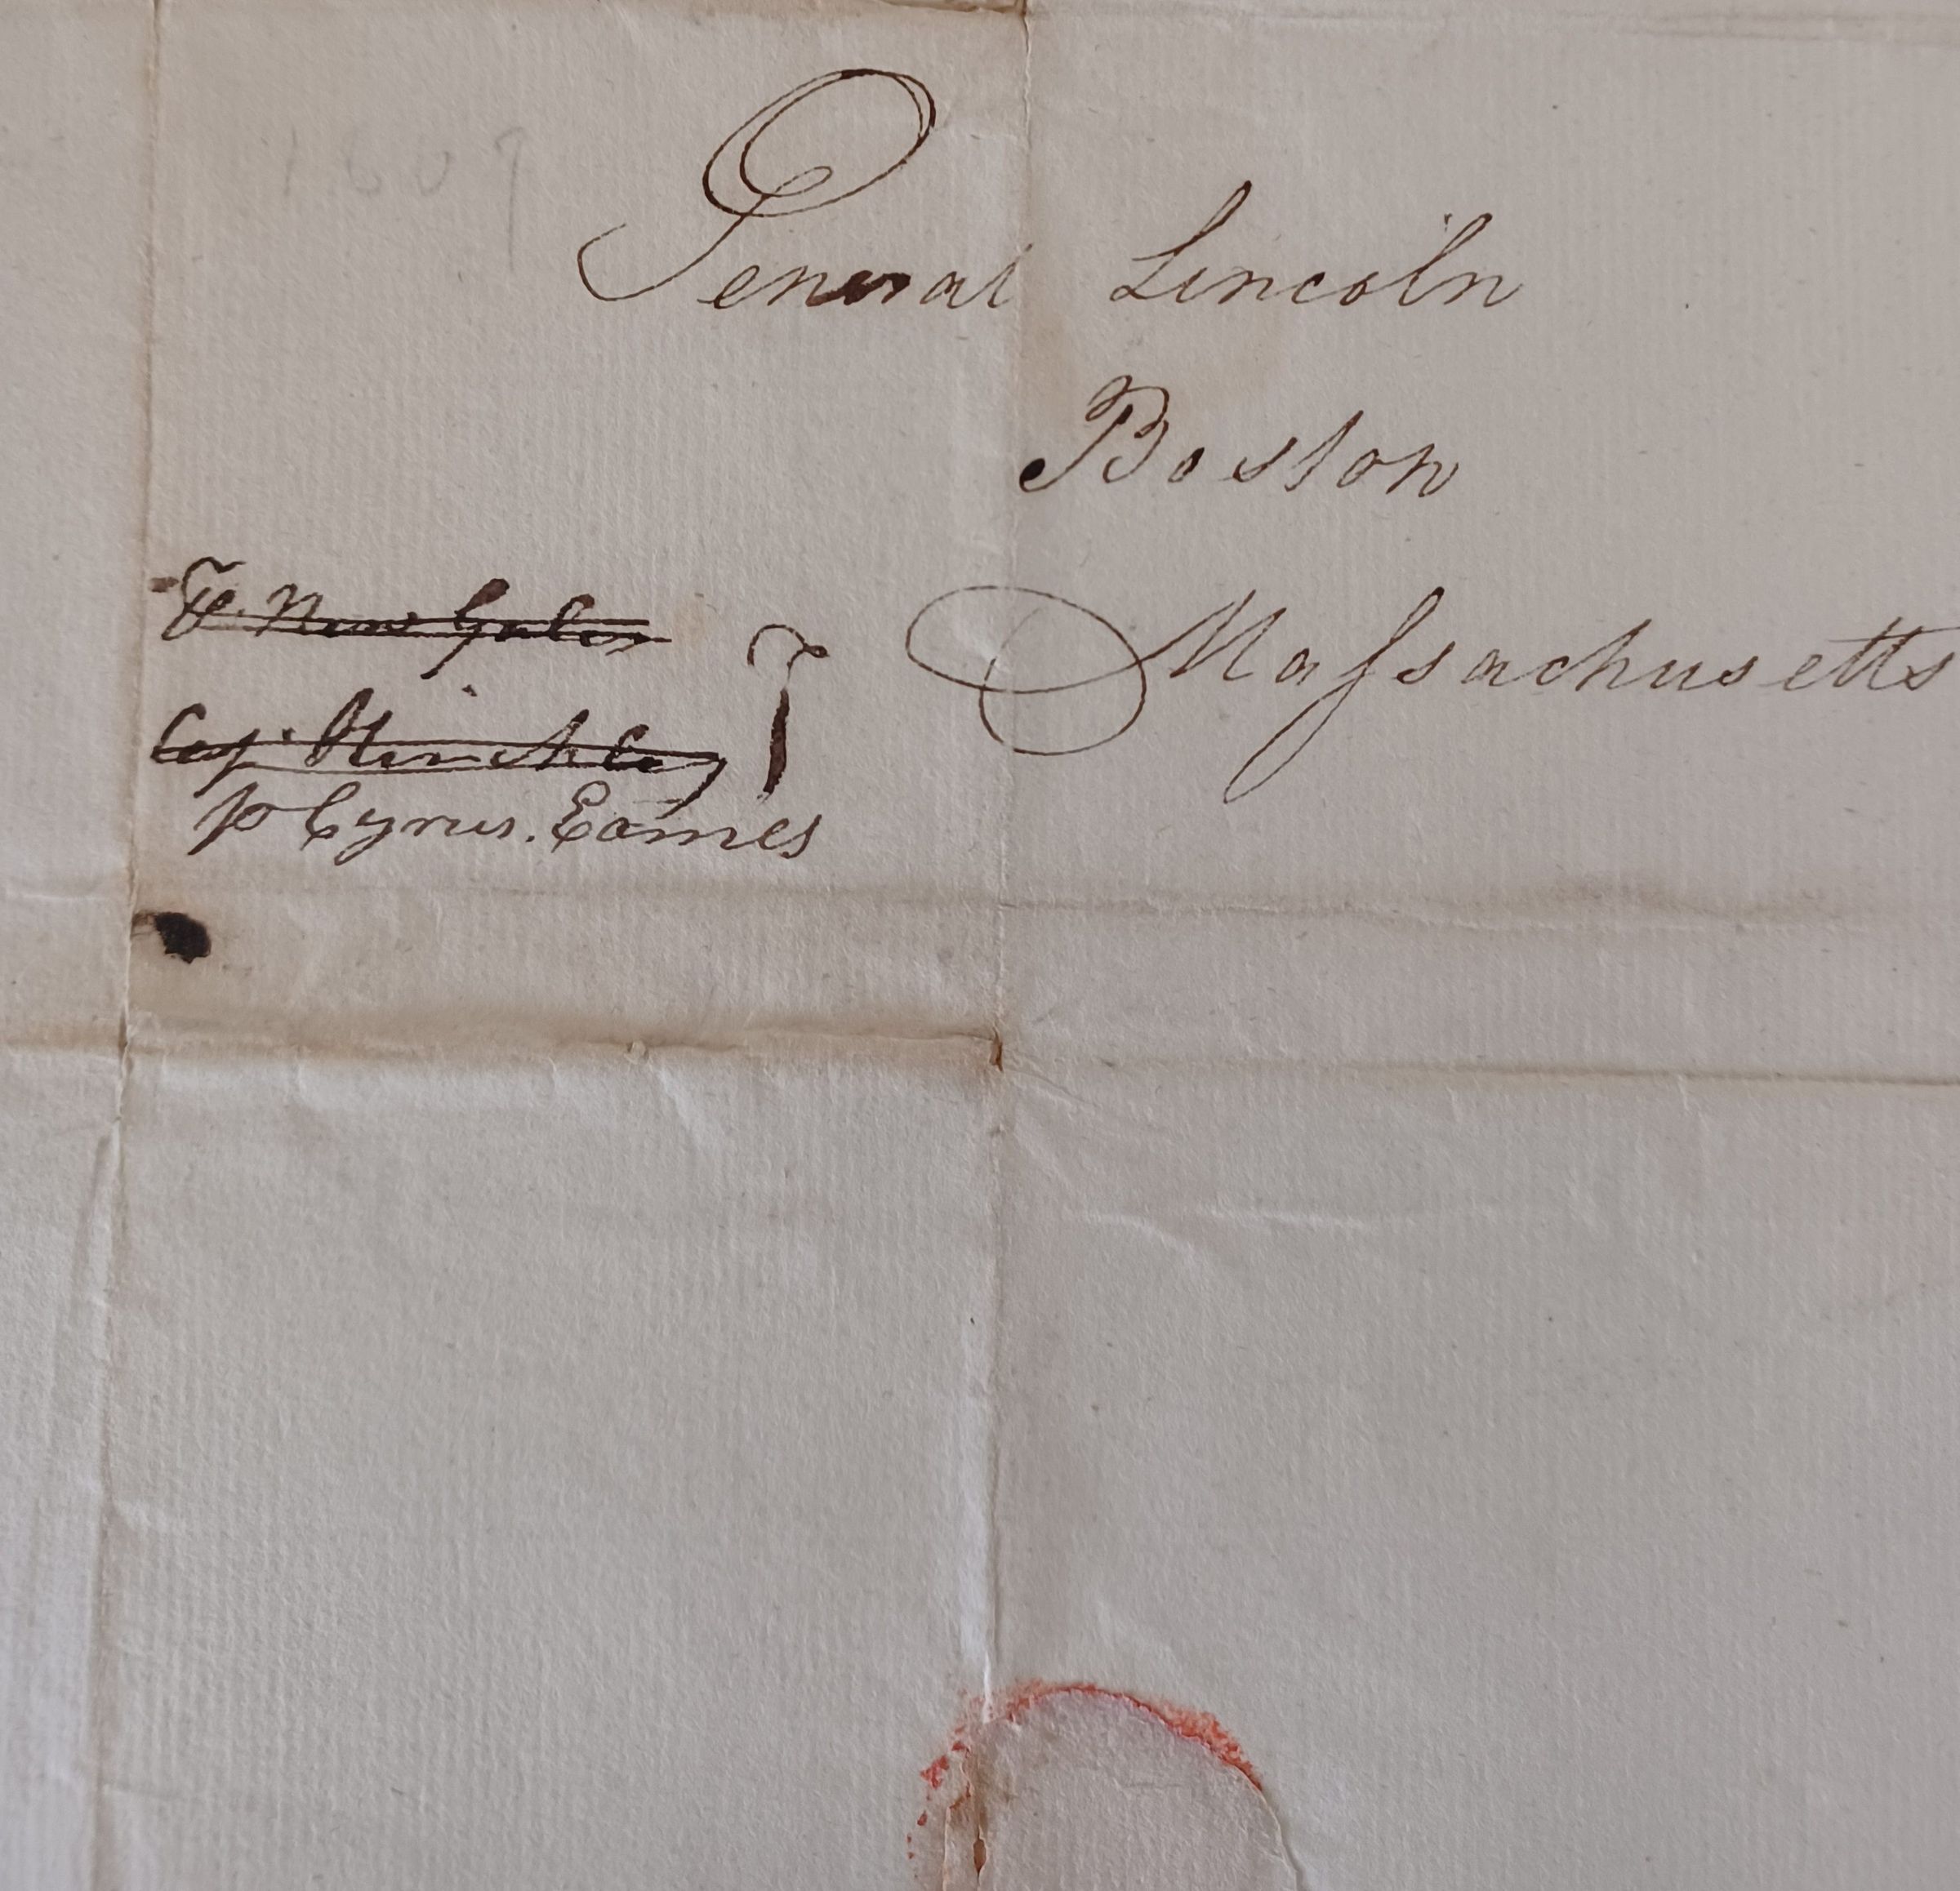 1809
General Lincoln
Boston
Massachusetts
Cap. Hinckley
p Cyrus. Eames